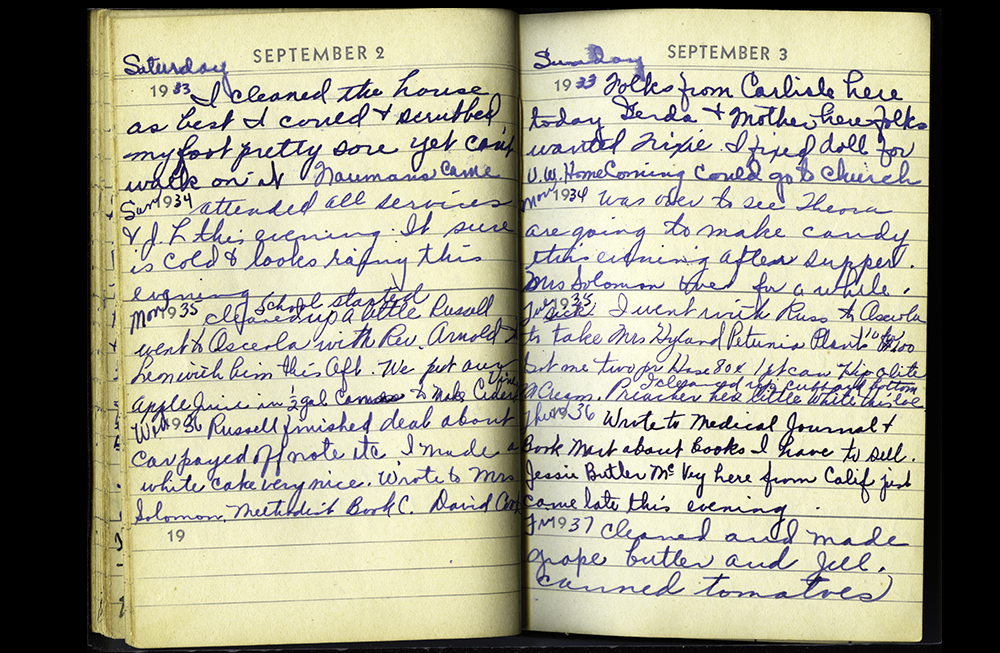 SEPTEMBER 2
Saturday
1933 I cleaned the house
as best I could & scrubbed
my foot pretty sore yet can't
walk on it Naumans came
Sun 1934 attended all services
& J. L this evening. It sure
is cold & looks rainy this
evening School started
Mon 1935 cleaned up a little Russell
went to Osceola with Rev. Arnold &
Leon with him this Aft. We put our
apple juice in ½ gal Cans to make Cider
Wed 1936 Russell finished deal about
car payed off note etc I made a
white cake very nice. Wrote to Mrs
Solomon, Methodist Book C. David Cook
19
SEPTEMBER 3
Sunday
1933 Folks from Carlisle here
today Gerda & Mother here folks
wanted Trixie. I fixed doll for
W.W. HomeComing could go to church
Mon 1934 Was over to see Theora
are going to make candy
this evening after supper.
Mrs Solomon over for a while.
Tue 1935 Sick. I went with Russ to Osceola
to take Mrs Hyland Petunia Plants
Got me two pr Hose 80¢ 1 pt can
Cream. I cleaned up cubbard bottom
Preacher here little while this eve.
Thu 1936 Wrote to Medical Journal &
Book Mart about books I have to sell.
Jessie Butler McVey here from Calif just
came late this evening.
Fri 1937 Cleaned and made
grape butter and Jell.
canned tomatoes